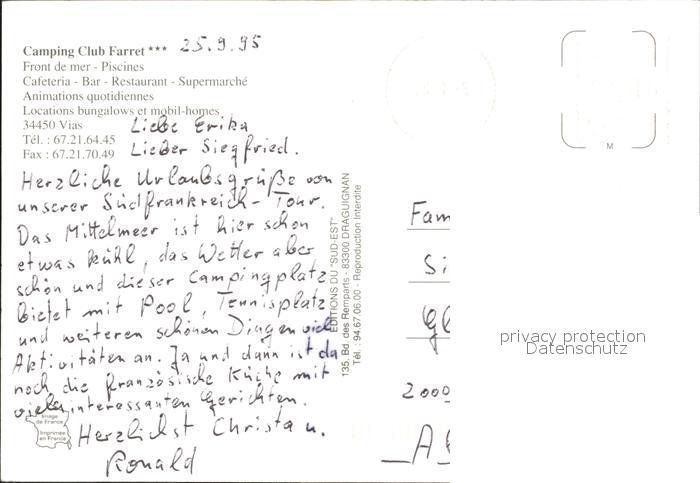 Camping Club Farret ***
25.9.95
Front de mer - Piscines
Cafeteria - Bar - Restaurant - Supermarché
Animations quotidiennes
Locations bungalows et mobil-homes
34450 Vias
Tél. : 67.21.64.45
Fax : 67.21.70.49
Liebe Erika
Lieber Siegfried.
Herzliche Urlaubsgrüße von
unserer Südfrankreich-Tour.
Das Mittelmeer ist hier schon
etwas kühl, das Wetter aber
schön und dieser Campingplatz
bietet mit Pool, Tennisplatz
und weiteren schönen Dingen viele
Aktivitäten an. Ja und dann ist da
noch die französische Küche mit
vielen interessanten Gerichten.
Herzlichst Christa u.
Ronald
Image
de France
Imprimée
en France
EDITIONS DU "SUD-EST"
135, Bd. des Remparts - 83300 DRAGUIGNAN
Tél. : 94.67.06.00 - Reproduction Interdite
M
Fam
Si
Gl
2000
privacy protection
Datenschutz